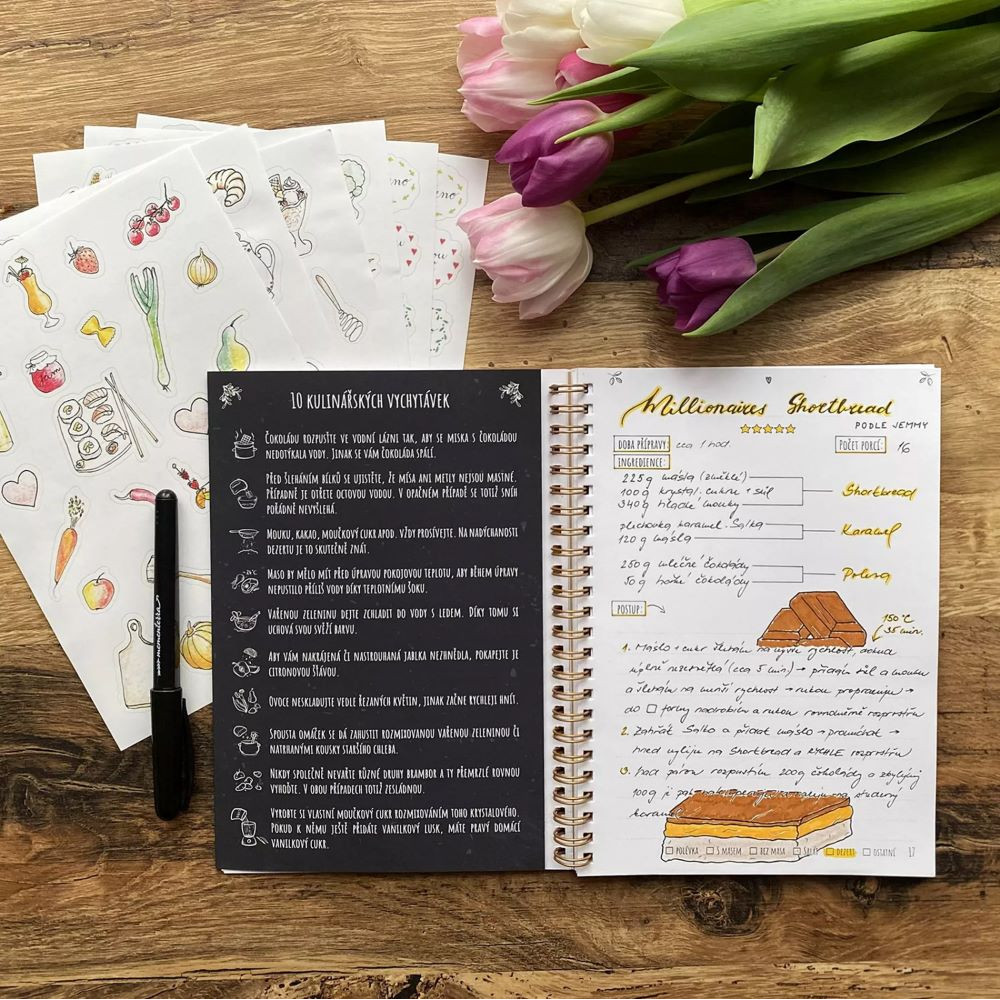 10 KULINÁŘSKÝCH VYCHYTÁVEK
ČOKOLÁDU ROZPUSŤTE VE VODNÍ LÁZNI TAK, ABY SE MISKA S ČOKOLÁDOU
NEDOTÝKALA VODY. JINAK SE VÁM ČOKOLÁDA SPÁLÍ.
PŘED ŠLEHÁNÍM BÍLKŮ SE UJISTĚTE, ŽE MÍSA ANI METLY NEJSOU MASTNÉ.
PŘÍPADNĚ JE OTŘETE OCTOVOU VODOU. V OPAČNÉM PŘÍPADĚ SE TOTIŽ SNÍH
POŘÁDNĚ NEVYŠLEHÁ.
MOUKU, KAKAO, MOUČKOVÝ CUKR APOD. VŽDY PROSÍVEJTE. NA NADÝCHANOSTI
DEZERTU JE TO SKUTEČNĚ ZNÁT.
MASO BY MĚLO MÍT PŘED ÚPRAVOU POKOJOVOU TEPLOTU, ABY BĚHEM ÚPRAVY
NEPUSTILO PŘÍLIŠ VODY DÍKY TEPLOTNÍMU ŠOKU.
VAŘENOU ZELENINU DEJTE ZCHLADIT DO VODY S LEDEM. DÍKY TOMU SI
UCHOVÁ SVOU SVĚŽÍ BARVU.
ABY VÁM NAKRÁJENÁ ČI NASTROUHANÁ JABLKA NEZHNĚDLA, POKAPEJTE JE
CITRONOVOU ŠŤÁVOU.
OVOCE NESKLADUJTE VEDLE ŘEZANÝCH KVĚTIN, JINAK ZAČNE RYCHLEJI HNÍT.
SPOUSTA OMÁČEK SE DÁ ZAHUSTIT ROZMIXOVANOU VAŘENOU ZELENINOU ČI
NATRHANÝMI KOUSKY STARŠÍHO CHLEBA.
NIKDY SPOLEČNĚ NEVAŘTE RŮZNÉ DRUHY BRAMBOR A TY PŘEMRZLÉ ROVNOU
VYHOĎTE. V OBOU PŘÍPADECH TOTIŽ ZESLÁDNOU.
VYROBTE SI VLASTNÍ MOUČKOVÝ CUKR ROZMIXOVÁNÍM TOHO KRYSTALOVÉHO.
POKUD K NĚMU JEŠTĚ PŘIDÁTE VANILKOVÝ LUSK, MÁTE PRAVÝ DOMÁCÍ
VANILKOVÝ CUKR.
Millionaires Shortbread
PODLE JEMMY
DOBA PŘÍPRAVY: cca 1 hod.
POČET PORCÍ: 16
INGREDIENCE:
225g másla (změklé)
100g krystal. cukru + sůl
340g hladké mouky
Shortbread
plechovka karamel. Salka
120g másla
Karamel
250g mléčné čokolády
50g hořké čokolády
Poleva
POSTUP:
150°C
35 min.
1. Máslo + cukr šlehám na vyšší rychlost, dokud
(cca 5 min) → přidám sůl a mouku
a šlehám na menší rychlost → rukou propracuju →
do □ formy nadrobím a rukou rovnoměrně rozprostřu
2. Zahřát Salko a přidat máslo → promíchat →
hned vyliju na Shortbread a RYCHLE rozprostřu
3. nad párou rozpustím 200g čokolády a zbylých
100g
karamel
POLÉVKA
S MASEM
BEZ MASA
SALÁT
DEZERT
OSTATNÍ
17